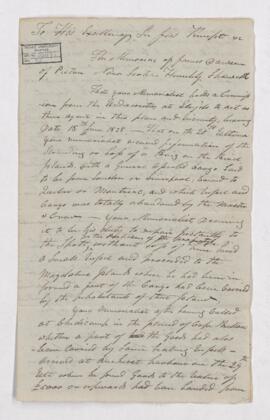 To His Excellency Sir Jas Kempt &c
The Memorial of James Dawson
of Pictou Nova Scotia Humbly Sheweth
That your Memorialist holds a Commission
from the Underwriters at to act as
their agent in this place and vicinity, bearing
Date 18th June 1828 — That on the Ultimo
your memorialist received information of the
Stranding or loss of a Brig on the
Island with a general Cargo said
to be from London or Liverpool, bound to
Quebec or Montreal, and which Vessel and
Cargo was totally abandoned by the Master
& Crew — Your Memorialist deeming
it to be his duty to repair instantly to
the Spot,
a Small Vessel and proceeded to the
Magdalen Islands where he had been informed
a part of the Cargo had been carried
by the inhabitants of that Island.
Your Memorialist after having called
at in the of Cape Breton
where a part of the Goods had also
been carried by some trading Vessel —
arrived at Amherst harbour on the 29th
where he found Goods to the value of
£2000 or upwards had been landed from